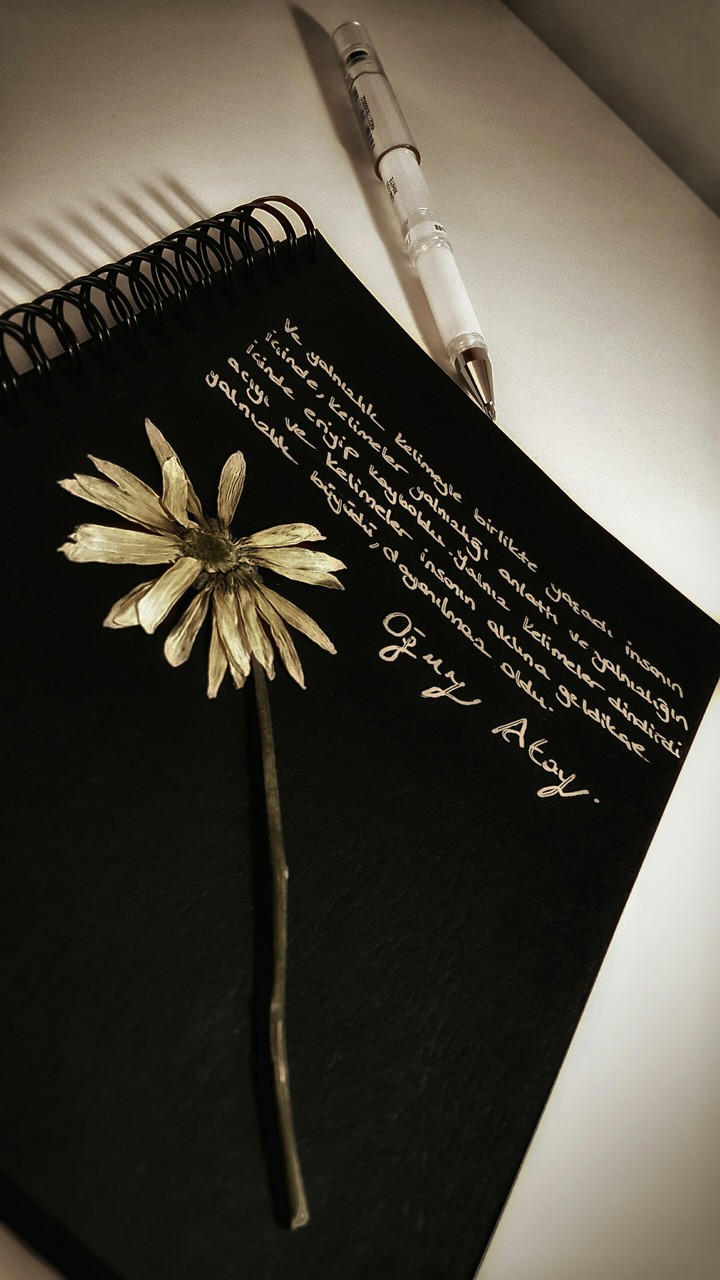 Ve yalnızlık kelimeyle birlikte yaşadı insanın
içinde, kelimeler yalnızlığı anlattı ve yalnızlığın
içinde eriyip kayboldu. Yalnız kelimeler dindirdi
acıyı ve kelimeler insanın aklına geldikçe
yalnızlık büyüdü, dayanılmaz oldu.
Oğuz Atay.